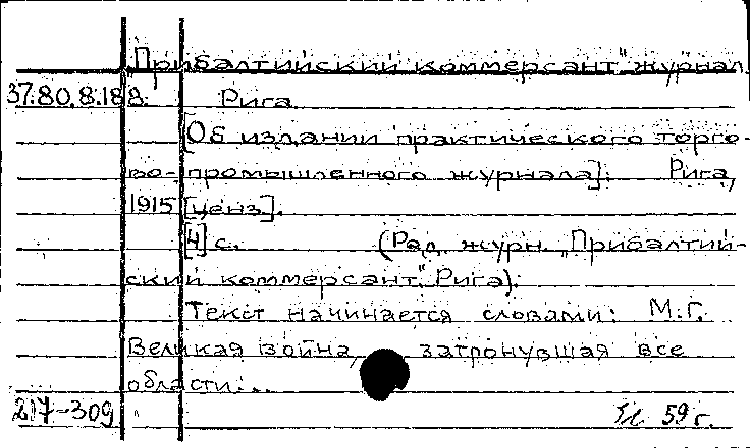 "Прибалтийский коммерсант" журнал.
37:80.8.188. Рига.
[Об издании практического торго-
во-промышленного журнала]. Рига,
1915 [ценз].
[4] с. (Ред. журн. „Прибалтий-
ский коммерсант." Рига).
Текст начинается словами: М.Г.
Великая война, затронувшая все
области...
217-309 59 г.